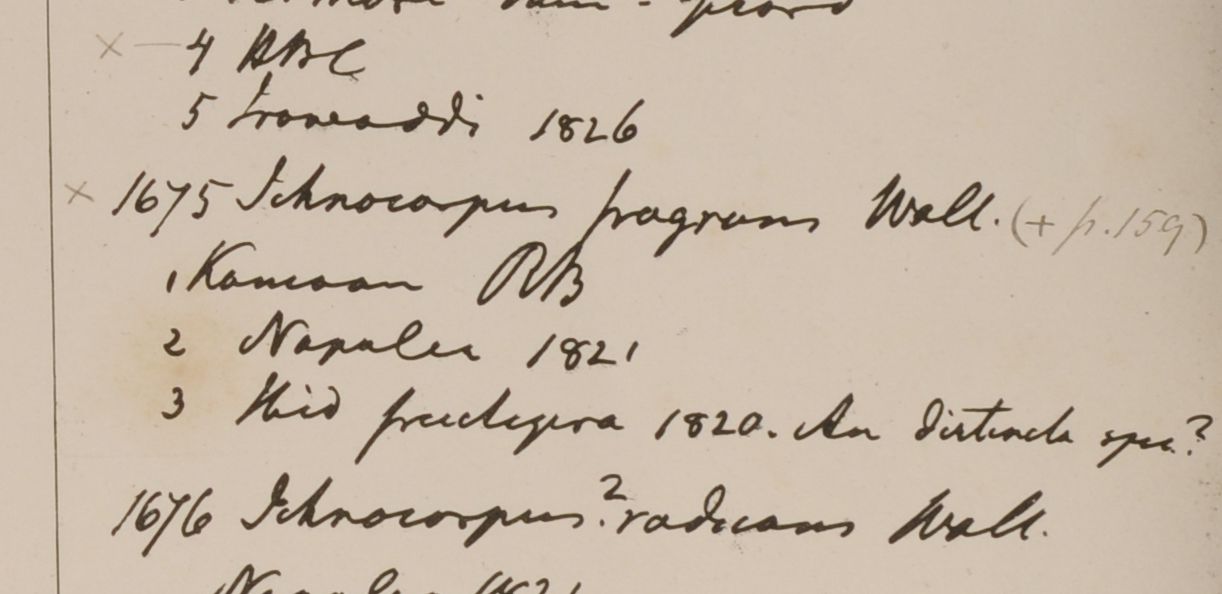 × — 4 HBC
5 Irawaddi 1826
× 1675 Ichnocarpus fragrans Wall. (+ p. 159)
1 Kamaon RB
2 Napalia 1821
3 Ibid fructigera 1820. An distincta spec?
1676 Ichnocarpus? radicans Wall.
Napalia 1821